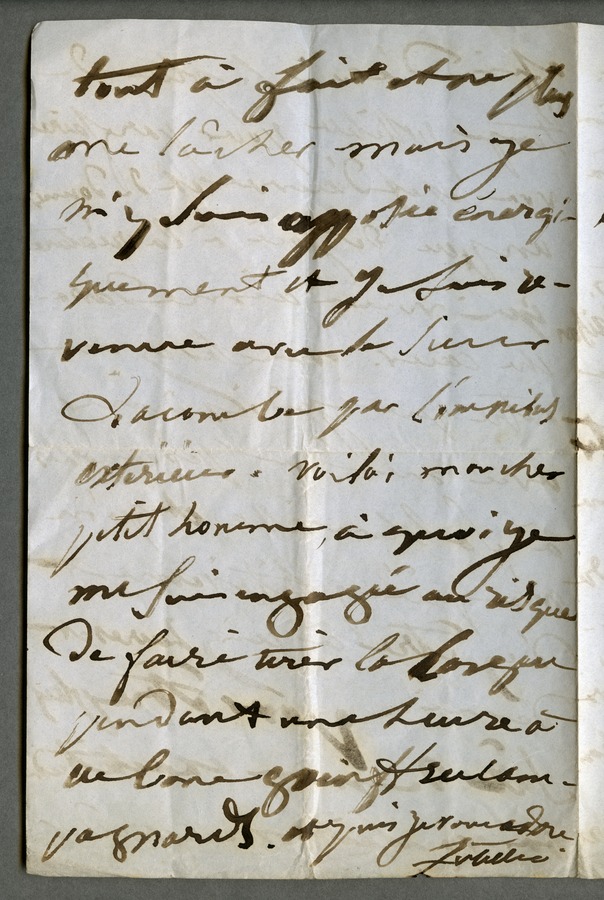 tout à fait et ne plus
me lâcher mais je
m'y suis opposée énergi-
quement et je suis re-
venue avec le sieur
Lacombe par l'omnibus
extérieur. voilà, mon cher
petit homme, à quoi je
me suis engagée au risque
de faire tirer la langue
pendant une heure à
ce bone
pagnards. et puis je vous adore